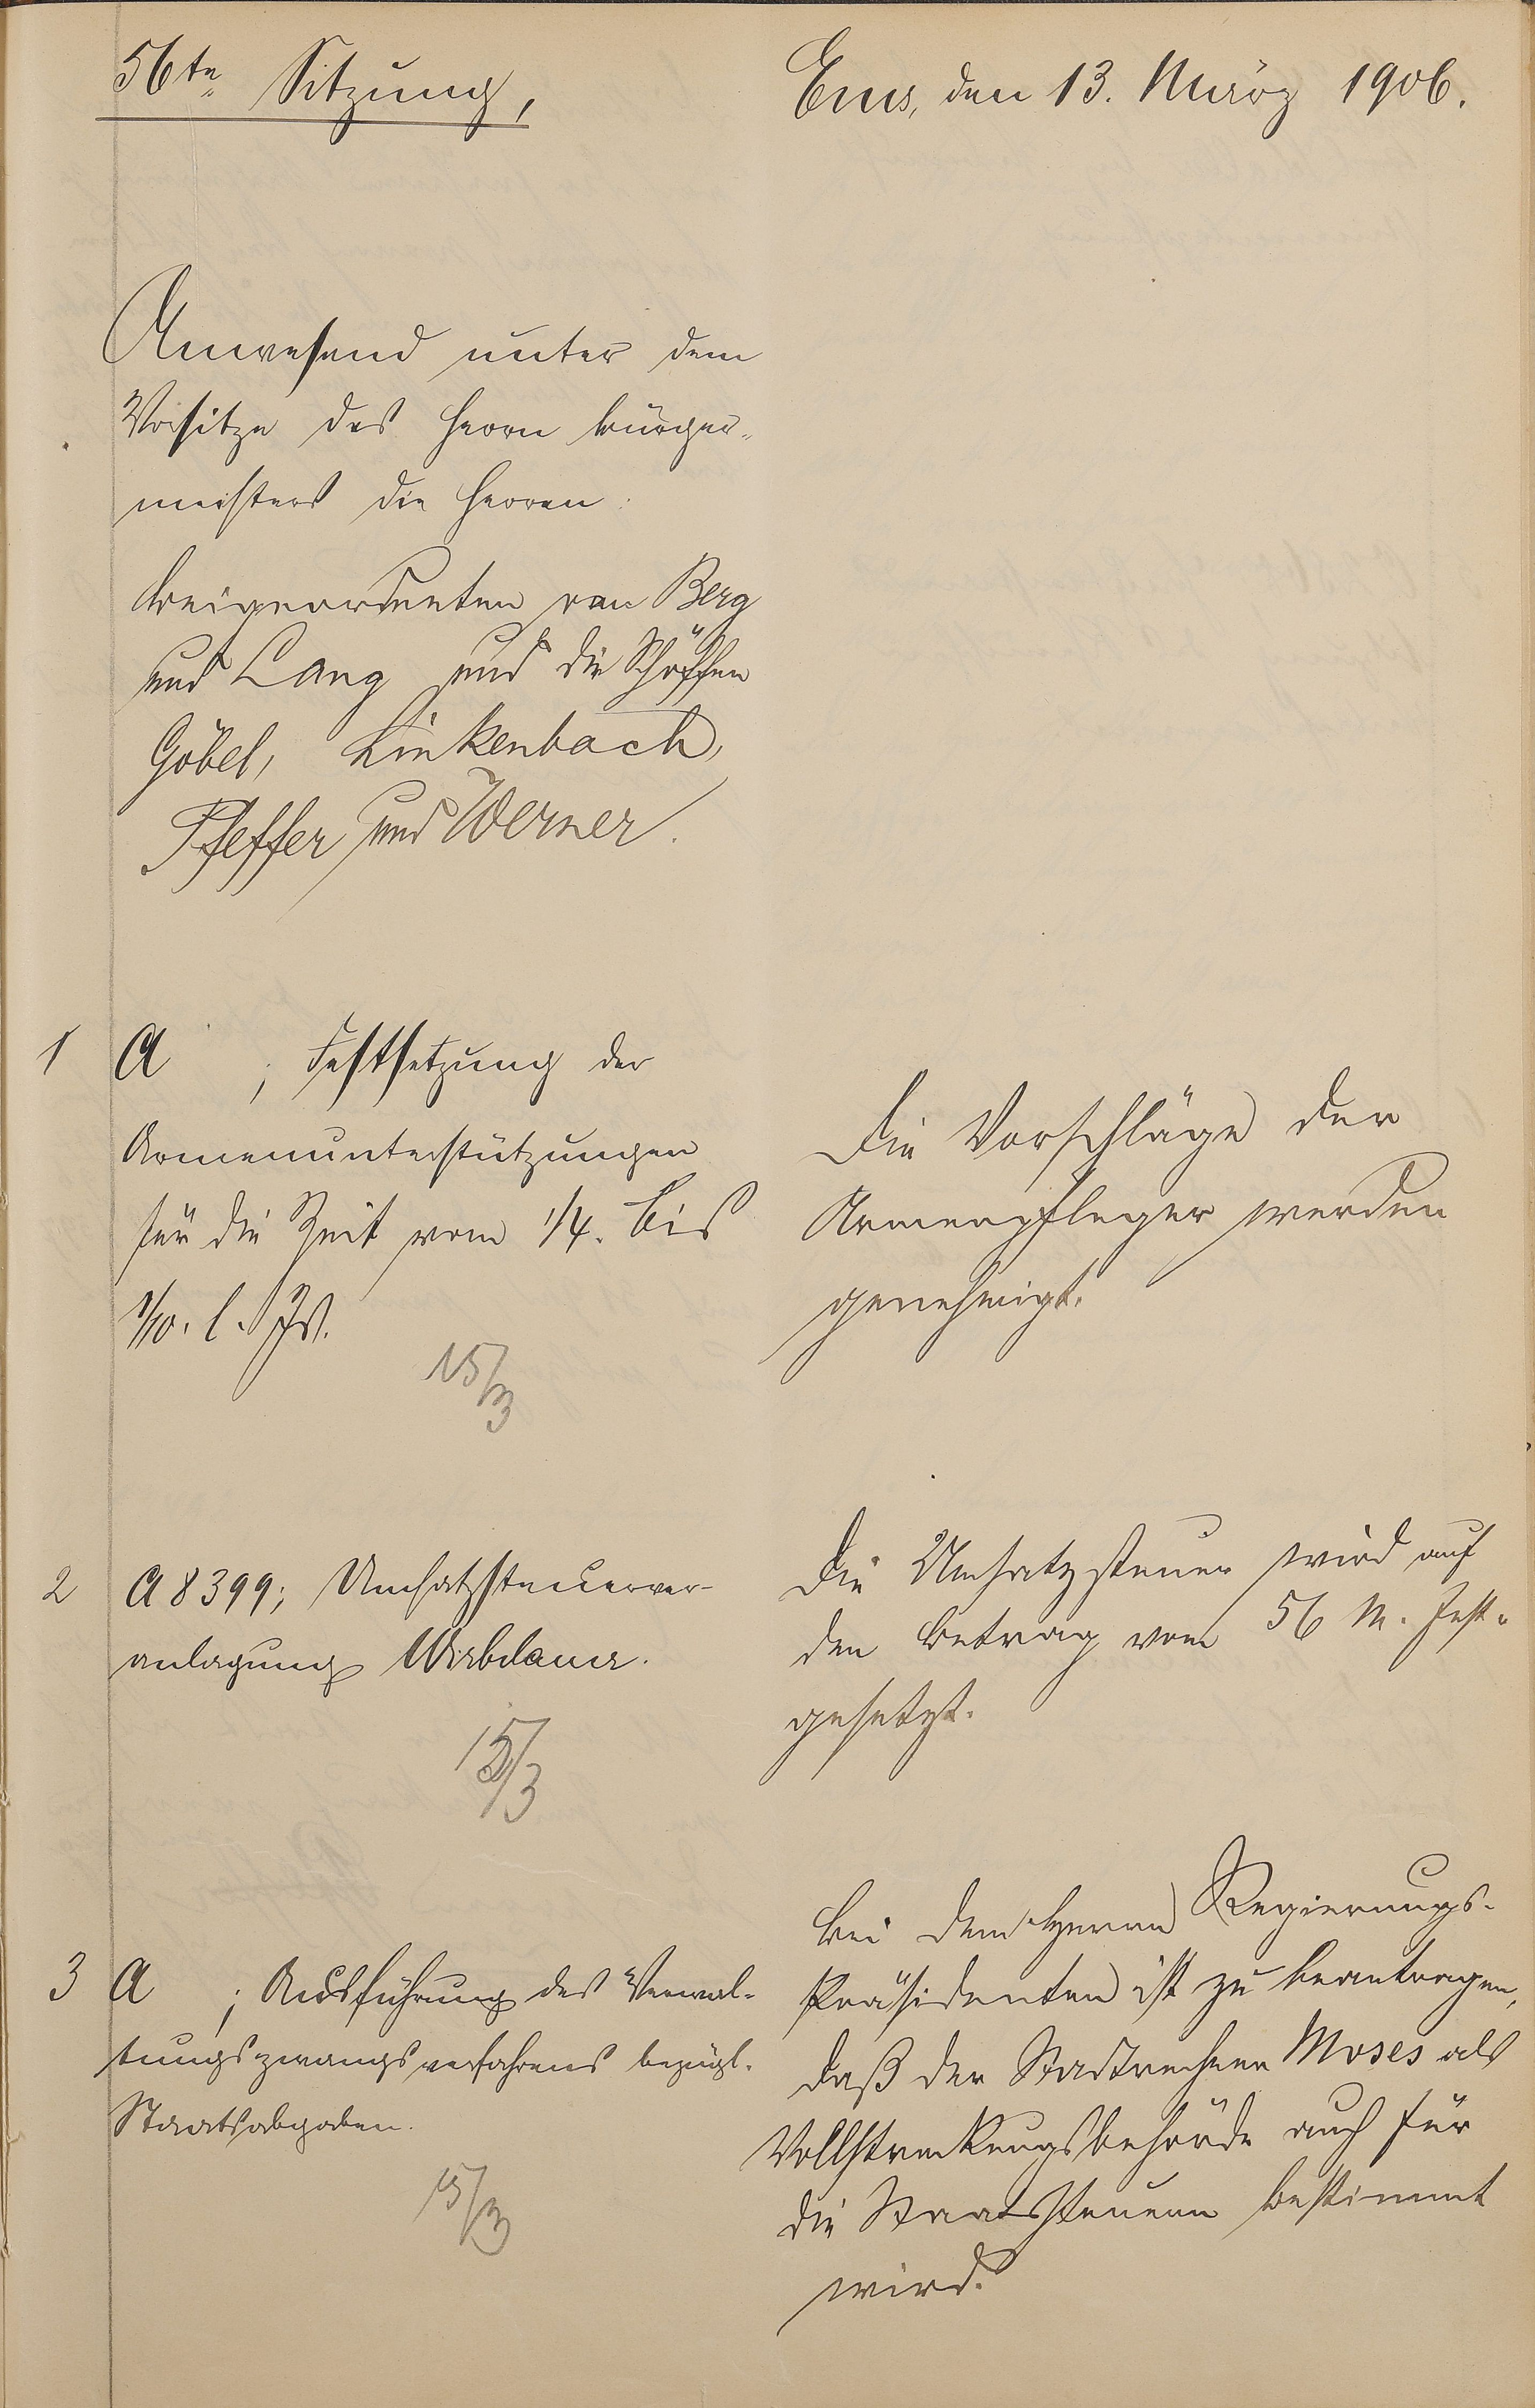 56te Sitzung,
Ems, den 13. März 1906.
Anwesend unter dem
Vorsitze des Herrn Bürger-
meisters die Herren:
Beigeordneten von Berg
und Lang und die Schöffen
Göbel, Linkenbach,
Pfeffer und Werner.
1 A ; Festsetzung der
Armenunterstützungen
für die Zeit vom 1/4. bis
1/10. l. Js.
15/3
Die Vorschläge der
Armenpfleger werden
genehmigt.
2 A 8399; Umsatzsteuerver-
anlagung Wirbelauer.
15/3
Die Umsatzsteuer wird auf
den Betrag von 56 M. fest-
gesetzt.
3 A ; Ausführung des Verwal-
tungszwangsverfahrens bezügl.
Staatsabgaben.
15/3
Bei dem Herrn Regierungs-
Präsidenten ist zu beantragen,
daß der Stadtrechner Moses als
Vollstreckungsbehörde auch für
die Staatssteuern bestimmt
wird.